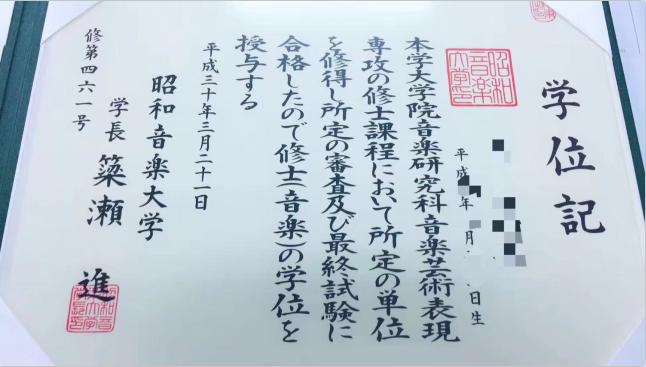 学位記
平成 年 月 日生
昭和
音楽
大学印
本学大学院音楽研究科音楽芸術表現
専攻の修士課程において所定の単位
を修得し所定の審査及び最終試験に
合格したので修士(音楽)の学位を
授与する
平成三十年三月二十一日
昭和音楽大学
学長 簗瀬 進
修第四六一号